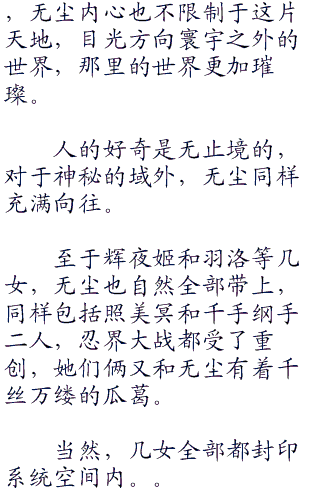 ，无尘内心也不限制于这片
天地，目光方向寰宇之外的
世界，那里的世界更加璀
璨。
人的好奇是无止境的，
对于神秘的域外，无尘同样
充满向往。
至于辉夜姬和羽洛等几
女，无尘也自然全部带上，
同样包括照美冥和千手纲手
二人，忍界大战都受了重
创，她们俩又和无尘有着千
丝万缕的瓜葛。
当然，几女全部都封印
系统空间内。。